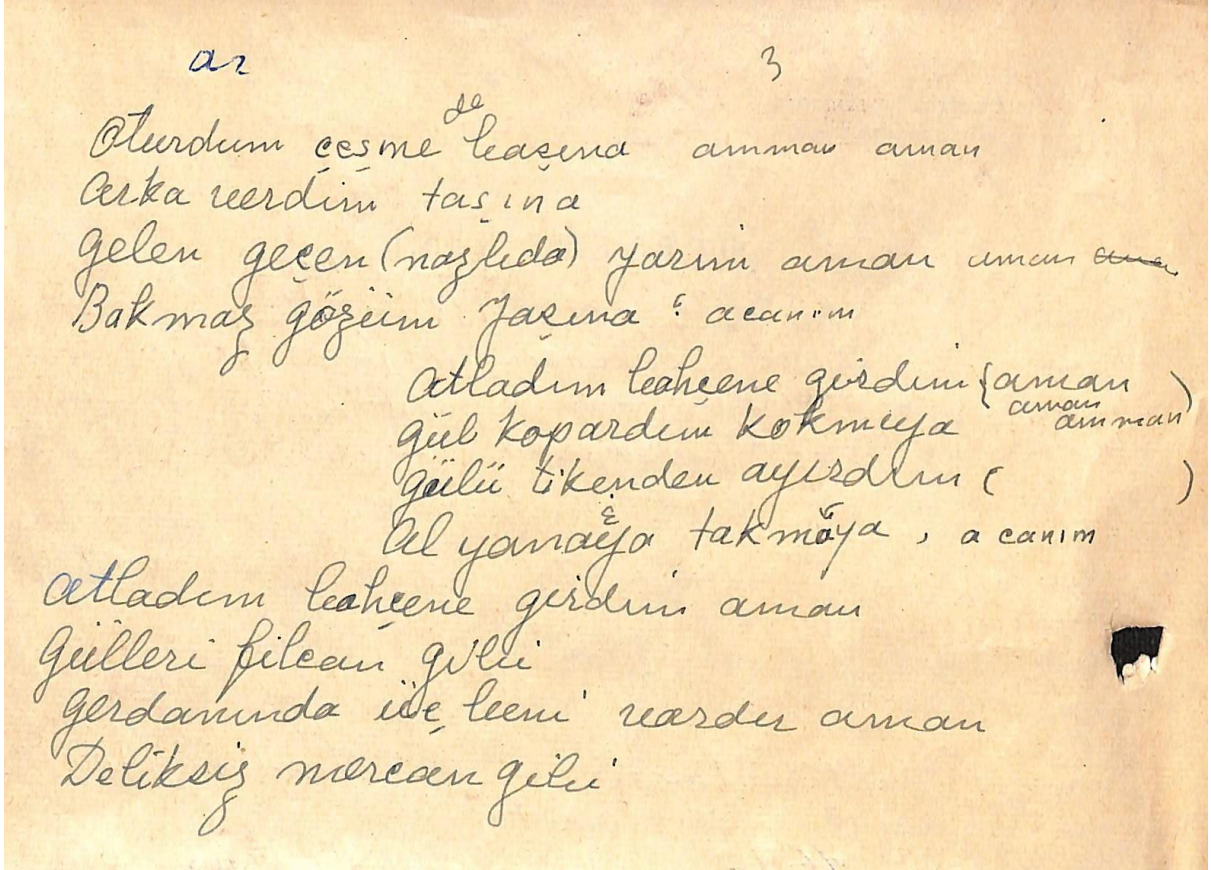 ar 3
Oturdum çeşme de başına amman aman
Arka verdim taşına
Gelen geçen (nazlıda) yarim aman aman
Bakmaz gözüm yaşına : acanım
Atladım bahçene girdim (aman aman amman)
Gül kopardım kokmıya
Gülü tikenden ayırdım ( )
Al yanağa takmıya, a canım
Atladım bahçene girdim aman
Gülleri filcan gibi
Gerdanında üç beni vardır aman
Deliksiz mercan gibi